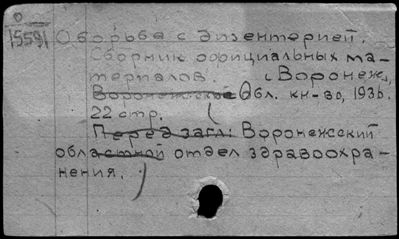 О
15591
О борьбе с дизентерией.
Сборник официальных ма-
териалов. Воронеж,
Воронежское Обл. кн-во, 1936.
22 стр.
Перед загл: Воронежский
областной отдел здравоохра-
нения.